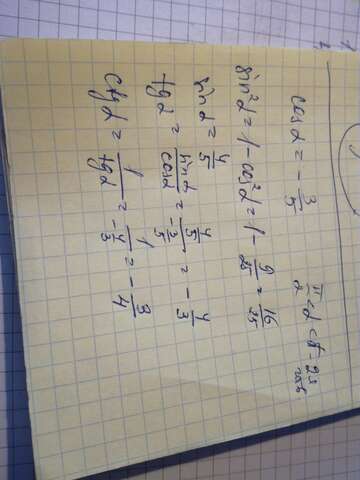 cos α = - 3/5    π/2 < α < π - 2я четв
sin²α = 1 - cos²α = 1 - 9/25 = 16/25
sin α = 4/5
tg α = sin α / cos α = 4/5 / - 3/5 = - 4/3
ctg α = 1 / tg α = 1 / - 4/3 = - 3/4